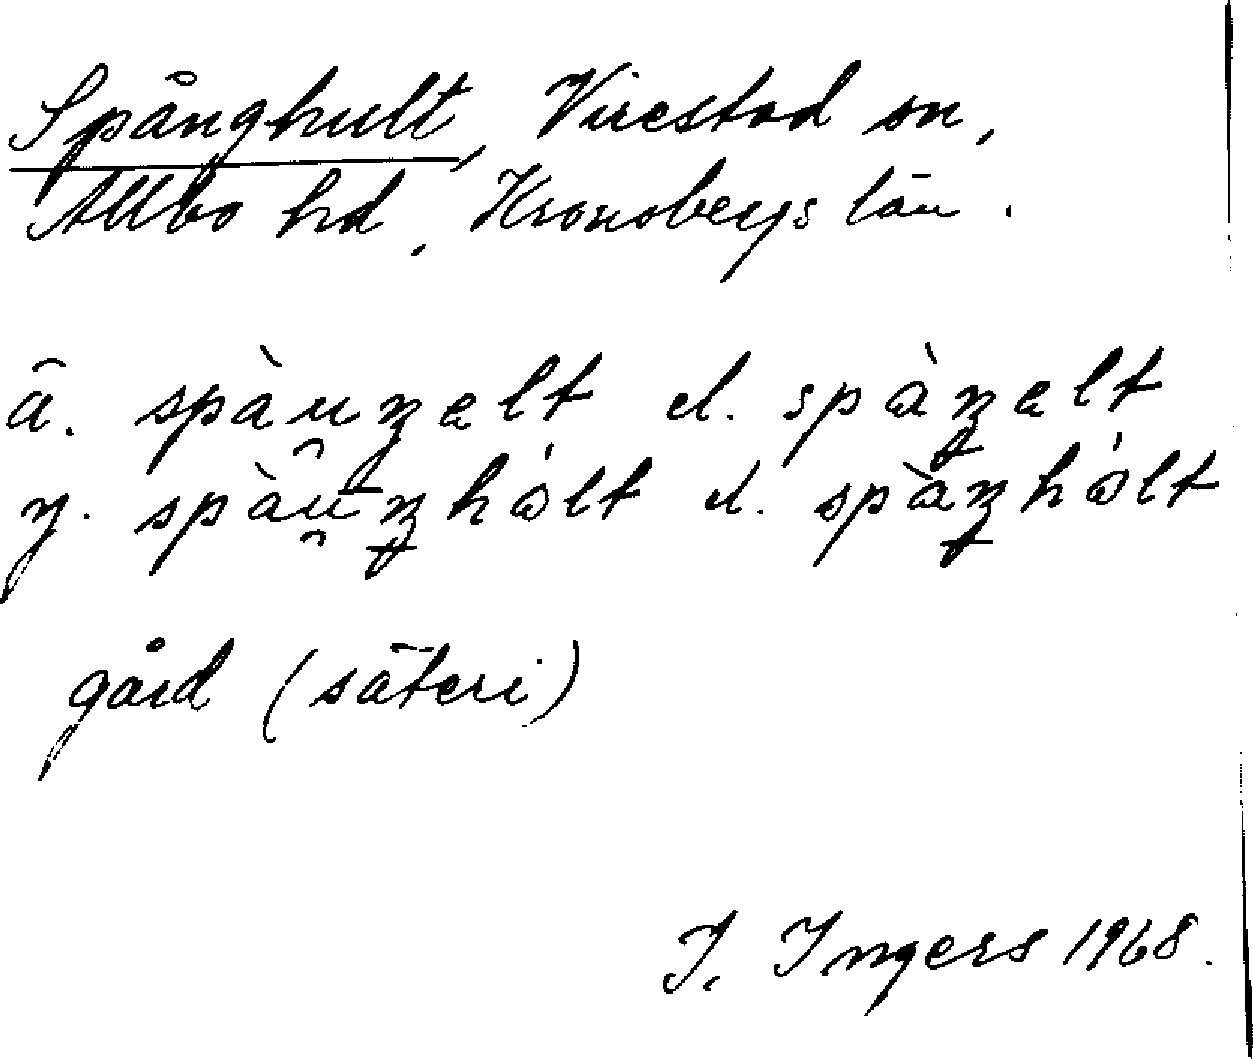 Spånghult, Virestad sn,
Allbo hd, Kronobergs län.
ä. spàuŋelt el. spàŋelt
y. spàuŋhólt el. spàŋhólt
gård (säteri)
I. Ingers 1968.